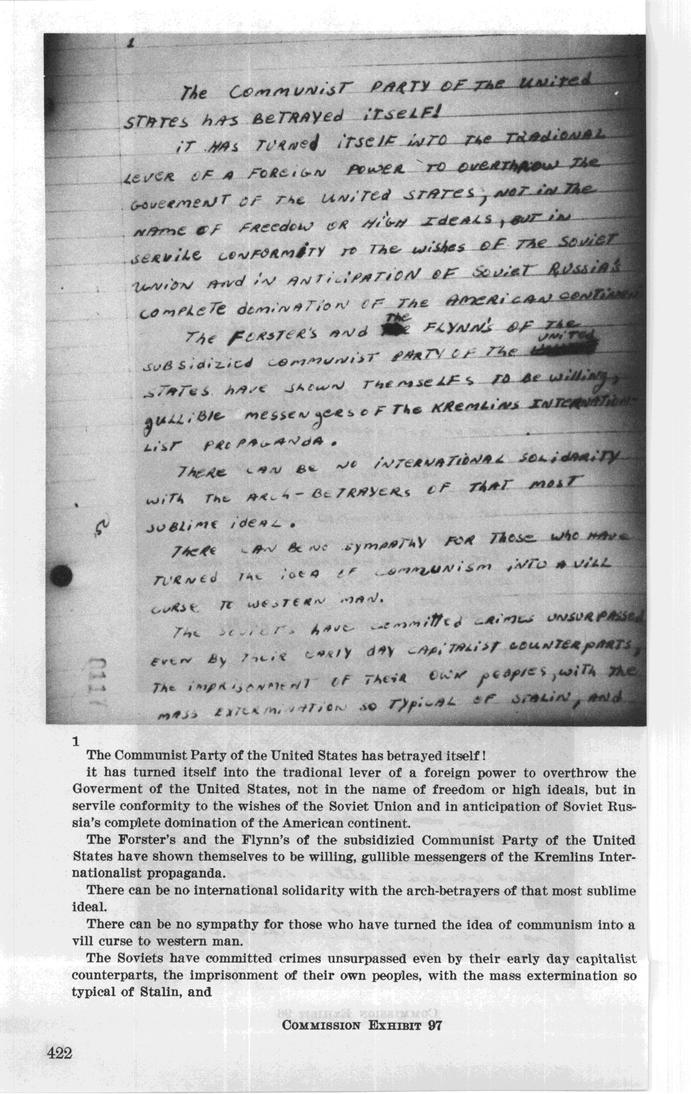 1
The COMMUNIST PARTY OF The UNITED
STATES hAS BETRAYED iTSELF!
iT HAS TURNED iTSELF INTO The TRADIONAL
LEVER OF A FOREIGN POWER TO OVERTHROW The
GOVERMENT OF The UNITED STATES, NOT iN The
NAME OF FREEdOM OR HIGH IDEALS, BUT iN
SERVILE CONFORMITY TO The wishes OF The SOViET
UNION ANd iN ANTICIPATION OF SOViET RUSSIA'S
COMPLETE domiNATION OF The AMERICAN CONTINEN
The FORSTER'S ANd The FLYNN'S OF The
SUBSIDIZIED COMMUNIST PARTY OF The UNITED
STATES hAVE ShOWN ThEMSELFS TO BE williNg,
gULLIBLE MESSENgERS OF The KREMLINS INTERNATION-
LIST PROPAGANdA.
ThERE CAN BE NO INTERNATIONAL SOLidARITY
wiTh The ARCh-BETRAYERS OF THAT MOST
SUBLIME idEAL.
ThERE CAN BE NO SYMPATHY FOR ThOSE whO hAVE
TURNEd The idEA OF COMMUNISM iNTO A VILL
CURSE TO WESTERN MAN.
The SOVIETS hAVE COMMITTEd CRIMES UNSURPASSED
EVEN BY ThEiR EARLY dAY CAPITALIST COUNTERPARTS,
The IMPRISONMENT OF ThEiR OWN PEOPLES, wiTh The
MASS EXTERMINATION SO TYPICAL OF STALIN, ANd
2
0117
1
The Communist Party of the United States has betrayed itself!
it has turned itself into the tradional lever of a foreign power to overthrow the
Goverment of the United States, not in the name of freedom or high ideals, but in
servile conformity to the wishes of the Soviet Union and in anticipation of Soviet Rus-
sia's complete domination of the American continent.
The Forster's and the Flynn's of the subsidizied Communist Party of the United
States have shown themselves to be willing, gullible messengers of the Kremlins Inter-
nationalist propaganda.
There can be no international solidarity with the arch-betrayers of that most sublime
ideal.
There can be no sympathy for those who have turned the idea of communism into a
vill curse to western man.
The Soviets have committed crimes unsurpassed even by their early day capitalist
counterparts, the imprisonment of their own peoples, with the mass extermination so
typical of Stalin, and
COMMISSION EXHIBIT 97
422